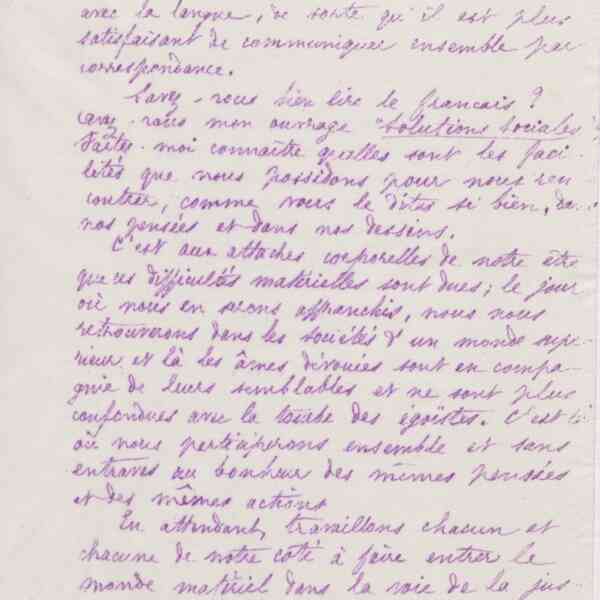 avec la langue, de sorte qu'il est plus
satisfaisant de communiquer ensemble par
correspondance.
Savez-vous bien lire le français?
avez-vous mon ouvrage "Solutions sociales"
Faites-moi connaître quelles sont les faci-
lités que nous possédons pour nous ren-
contrer, comme vous le dites si bien, dans
nos pensées et dans nos desseins.
C'est aux attaches corporelles de notre être
que ces difficultés matérielles sont dues; le jour
où nous en serons affranchis, nous nous
retrouverons dans les sociétés d'un monde supé-
rieur et là les âmes dévouées sont en compa-
gnie de leurs semblables et ne sont plus
confondues avec la tourbe des égoïstes. C'est
où nous participerons ensemble et sans
entraves au bonheur des mêmes pensées
et des mêmes actions
En attendant, travaillons chacun et
chacune de notre côté à faire entrer le
monde matériel dans la voie de la jus-